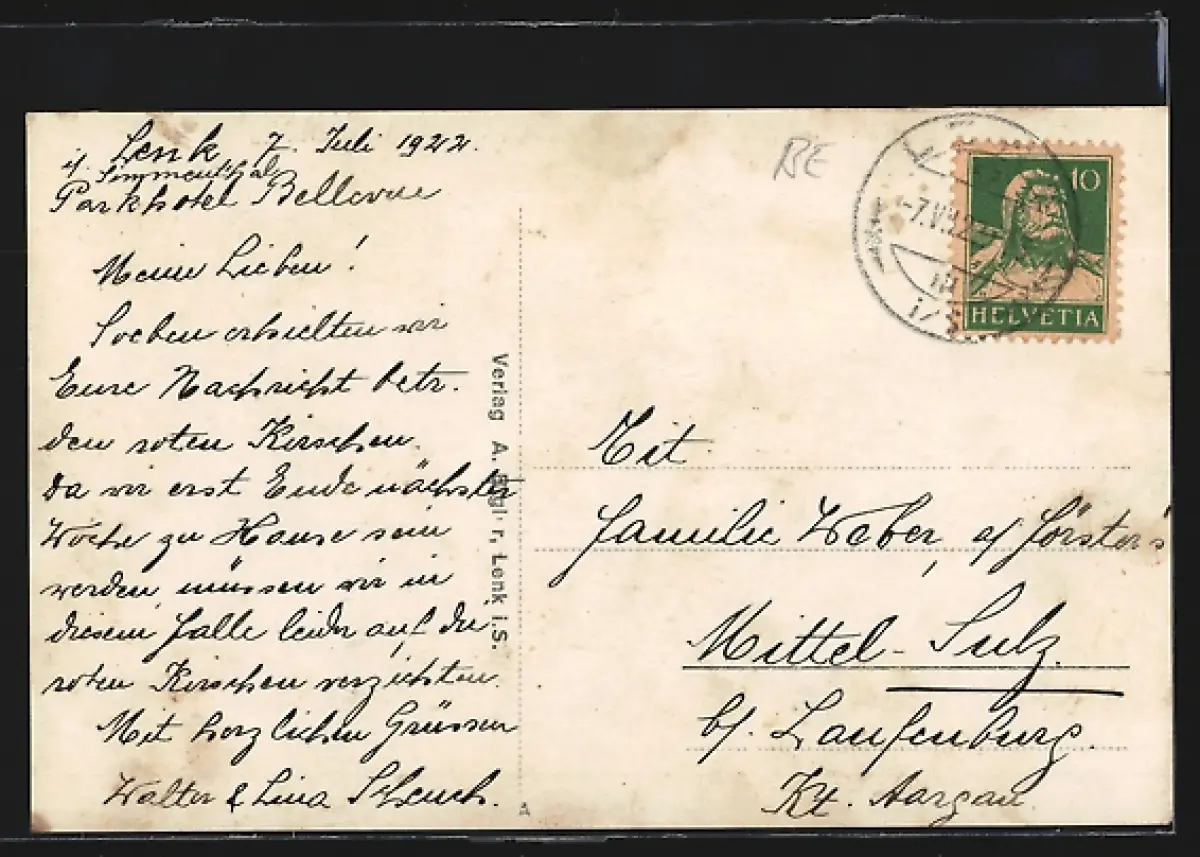 Lenk 7. Juli 1922.
i/ Simmenthal
Parkhotel Bellevue
Meine Lieben!
Soeben erhielten wir
Eure Nachricht betr.
den roten Kirschen.
Da wir erst Ende nächster
Woche zu Hause sein
werden, müssen wir in
diesem Falle leider auf die
roten Kirschen verzichten.
Mit herzlichen Grüssen
Walter & Lina
Verlag A. Lenk i. S.
A
BE
10
HELVETIA
Tit.
Familie Weber, a/ Förster's
Mittel-Sulz.
b/. Laufenburg.
Kt. Aargau.